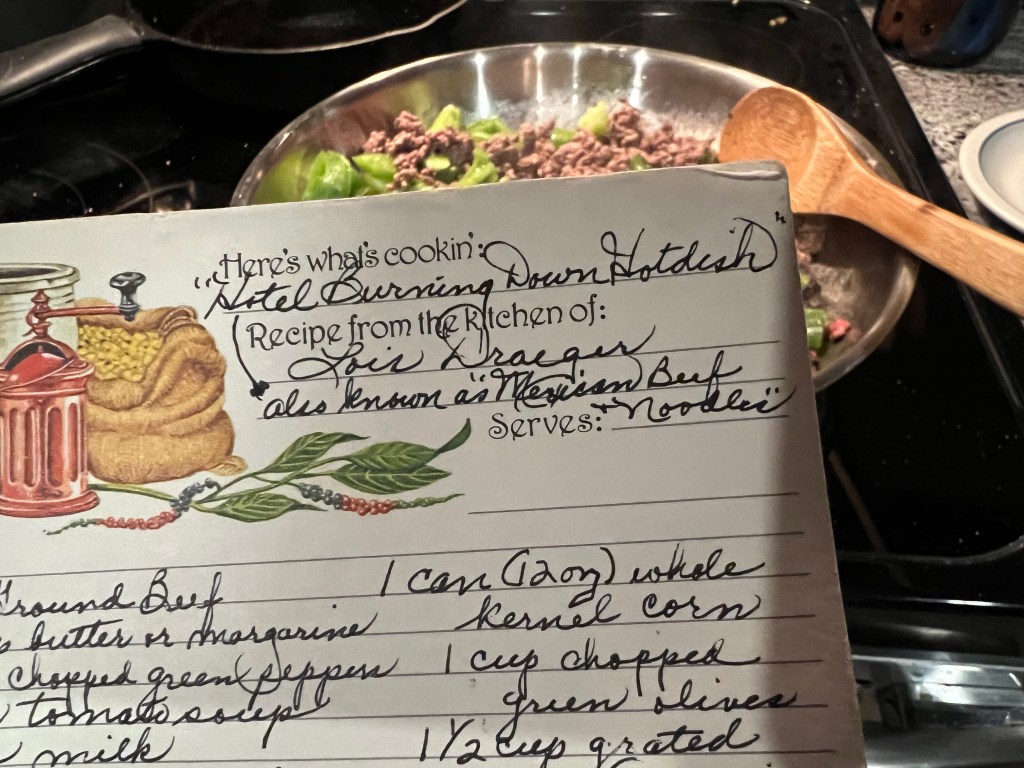 Here's what's cookin':
"Hotel Burning Down Hotdish"
Recipe from the kitchen of:
Lois Draeger
also known as "Mexican Beef
+ Noodles"
Serves:
Ground Beef
butter or margarine
chopped green peppers
tomato soup
milk
1 can (12 oz) whole
kernel corn
1 cup chopped
green olives
1 1/2 cup grated